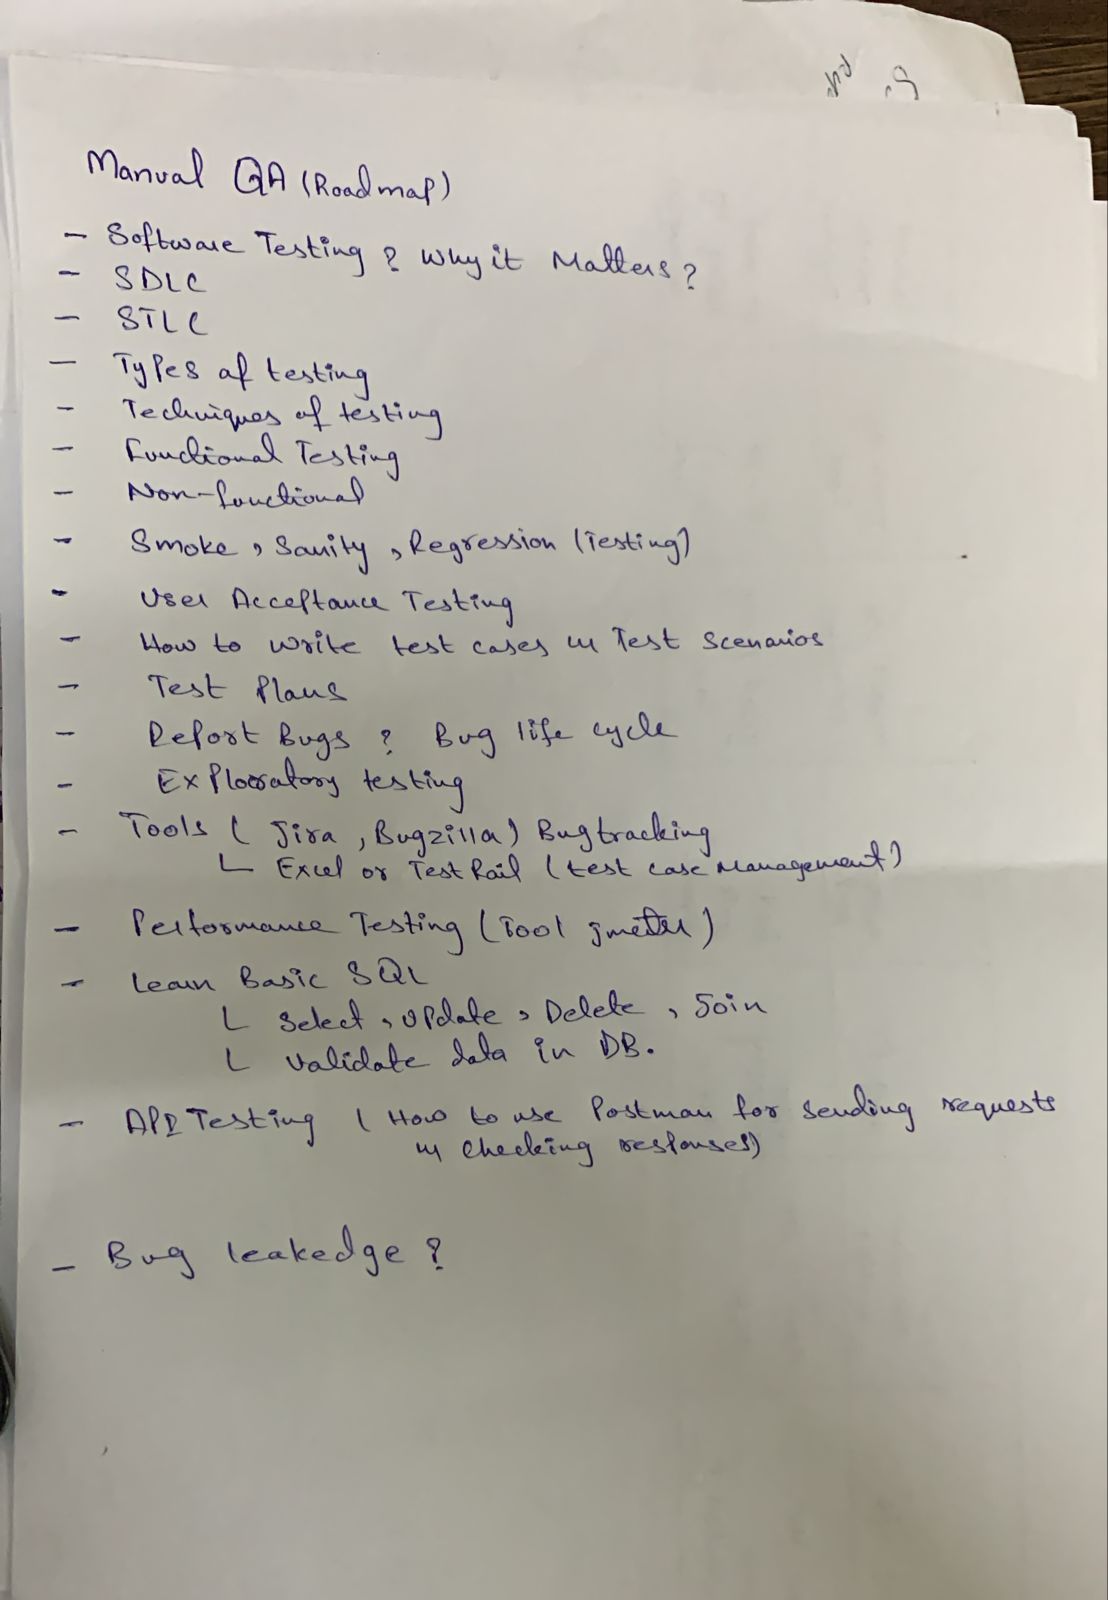 Manual QA (Roadmap)
- Software Testing ? Why it Matters ?
- SDLC
- STLC
- Types of testing
- Techniques of testing
- Functional Testing
- Non-functional
- Smoke, Sanity, Regression (Testing)
- User Acceptance Testing
- How to write test cases & Test Scenarios
- Test Plans
- Report Bugs ? Bug life cycle
- Exploratory testing
- Tools ( Jira, Bugzilla) Bugtracking
└ Excel or TestRail (test case Management)
- Performance Testing (Tool jmeter)
- Learn Basic SQL
└ Select, Update, Delete, Join
└ Validate data in DB.
- API Testing ( How to use Postman for sending requests
& checking responses)
- Bug leakedge ?